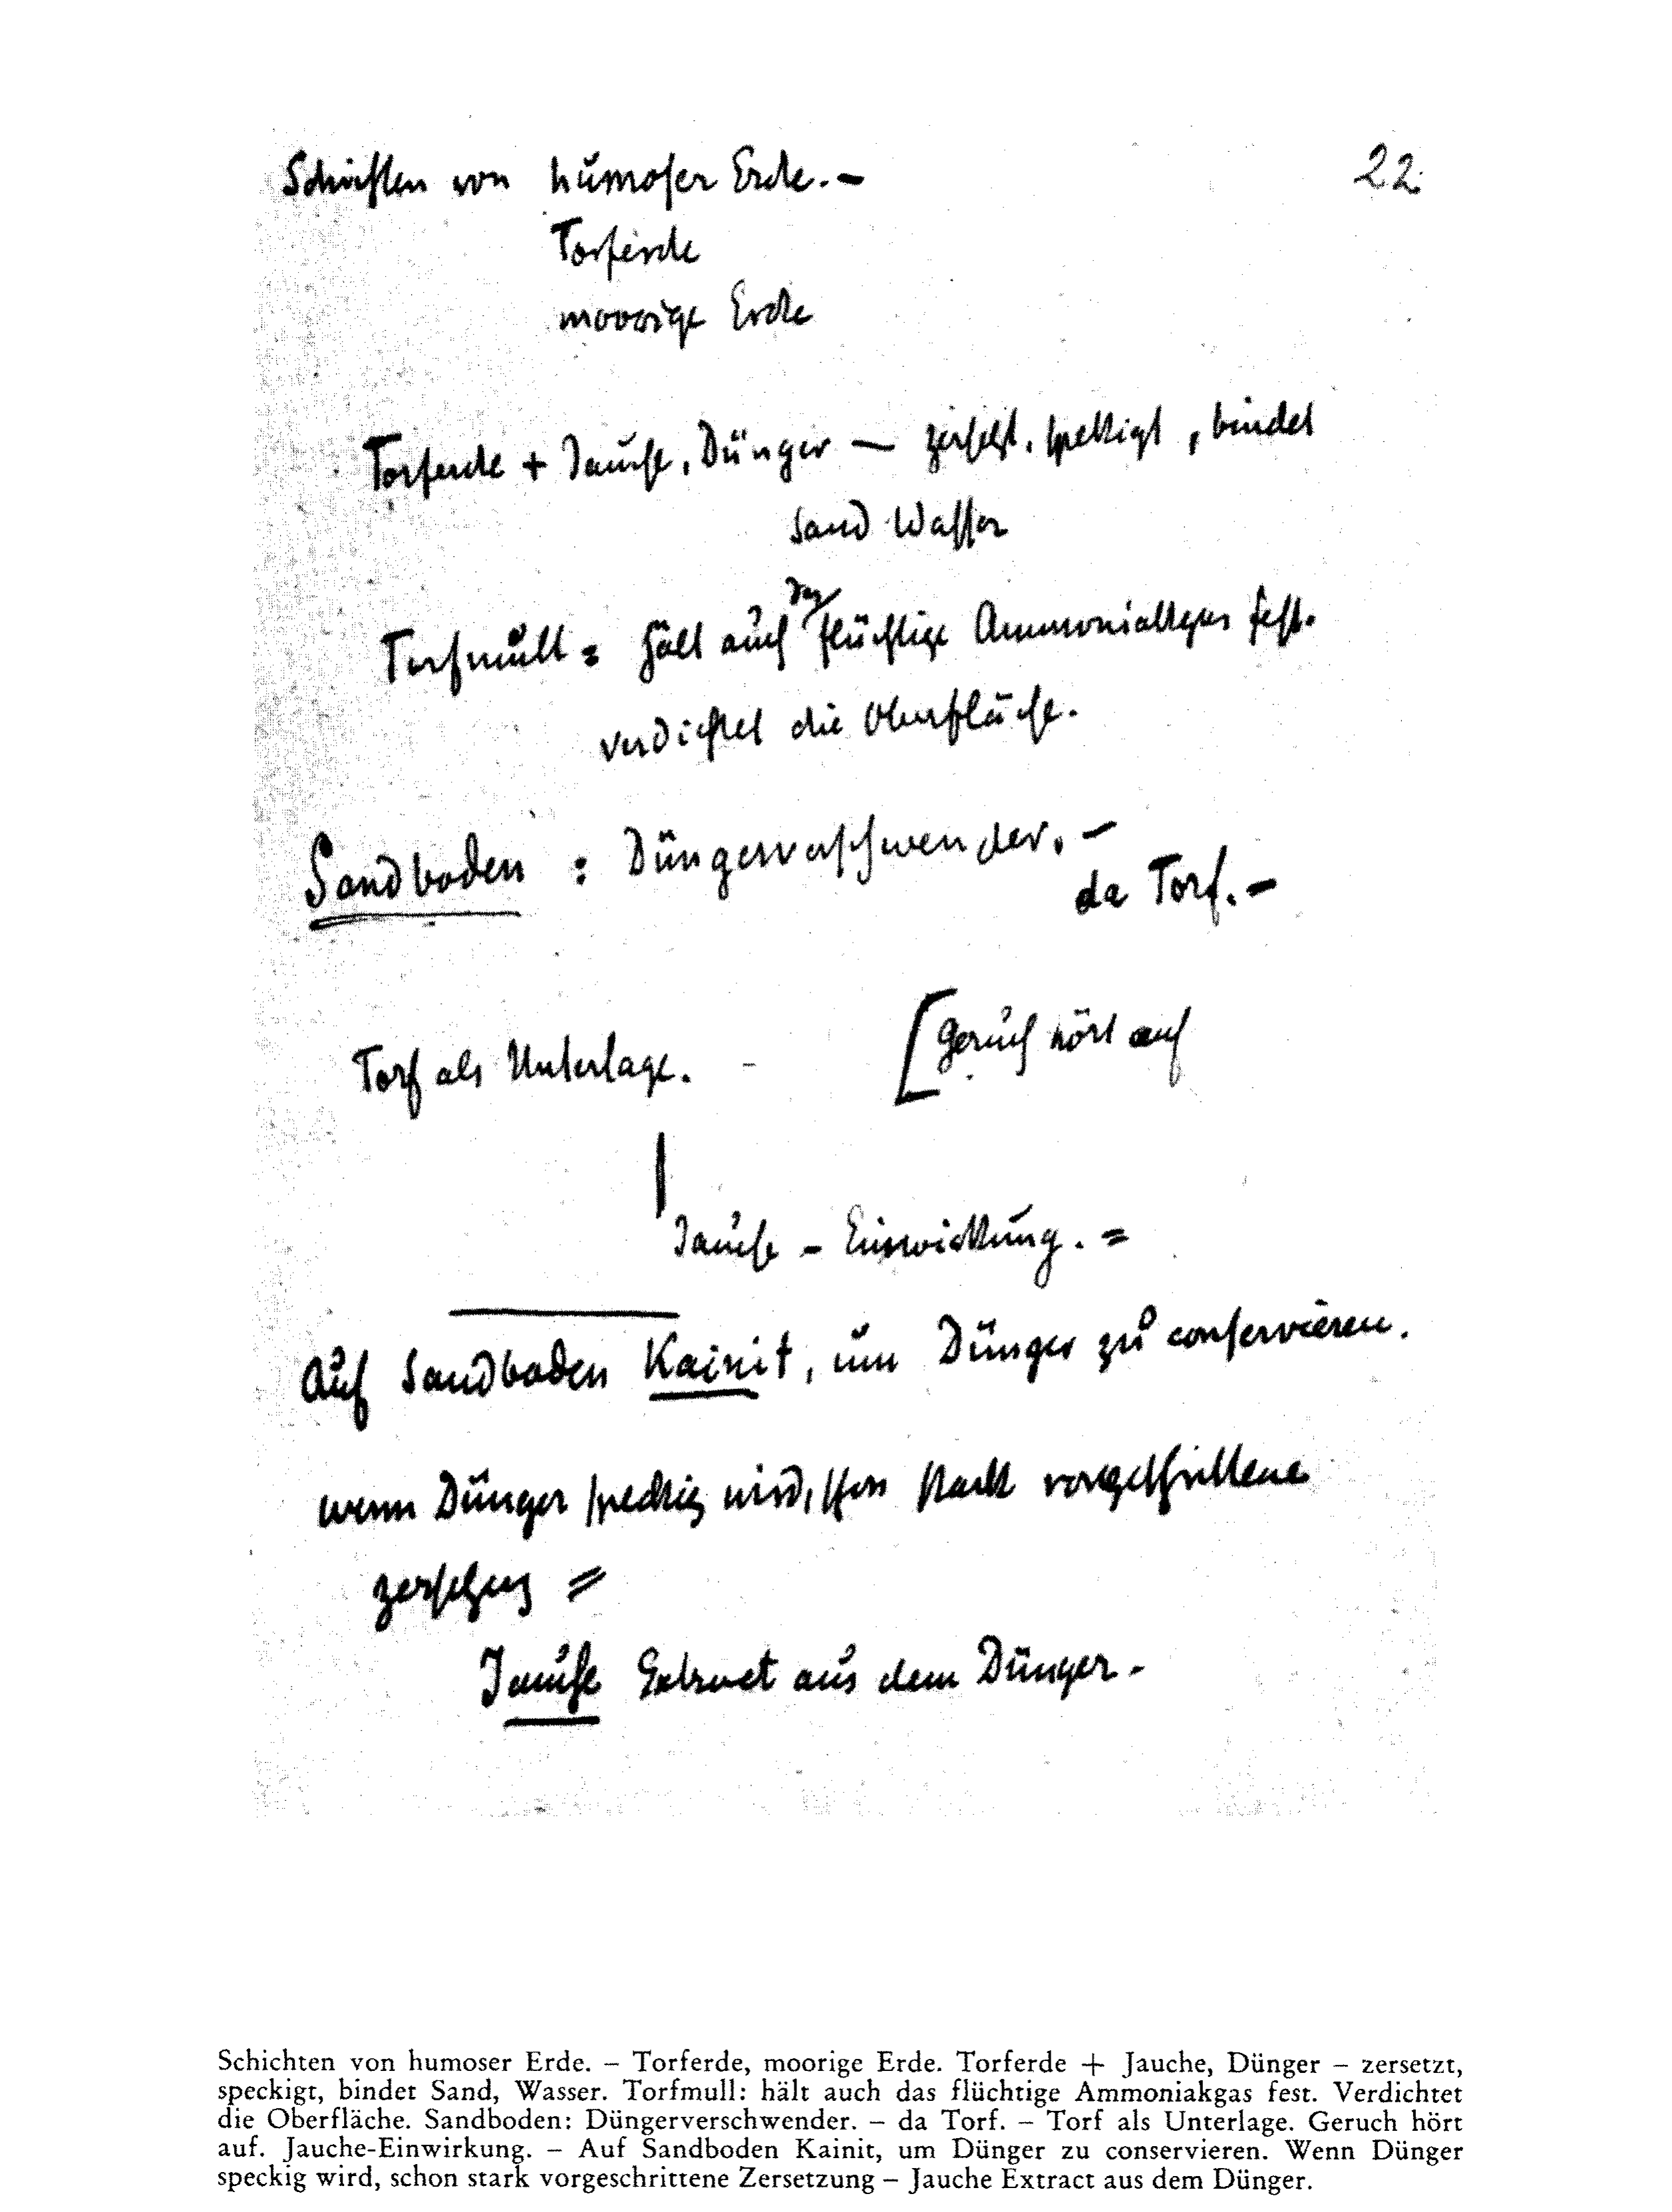 Schichten von humoser Erde. –
22
Torferde
moorige Erde
Torferde + Jauche, Dünger — zersetzt, speckigt, bindet
Sand Wasser
das
Torfmull = hält auch flüchtige Ammoniakgas fest.
verdichtet die Oberfläche.
Sandboden : Düngerverschwender. –
da Torf. –
Torf als Unterlage. –
[Geruch hört auf
Jauche – Einwirkung. =
Auf Sandboden Kainit, um Dünger zu conservieren.
wenn Dünger speckig wird, schon stark vorgeschrittene
Zersetzung =
Jauche Extract aus dem Dünger –
Schichten von humoser Erde. – Torferde, moorige Erde. Torferde + Jauche, Dünger – zersetzt,
speckigt, bindet Sand, Wasser. Torfmull: hält auch das flüchtige Ammoniakgas fest. Verdichtet
die Oberfläche. Sandboden: Düngerverschwender. – da Torf. – Torf als Unterlage. Geruch hört
auf. Jauche-Einwirkung. – Auf Sandboden Kainit, um Dünger zu conservieren. Wenn Dünger
speckig wird, schon stark vorgeschrittene Zersetzung – Jauche Extract aus dem Dünger.